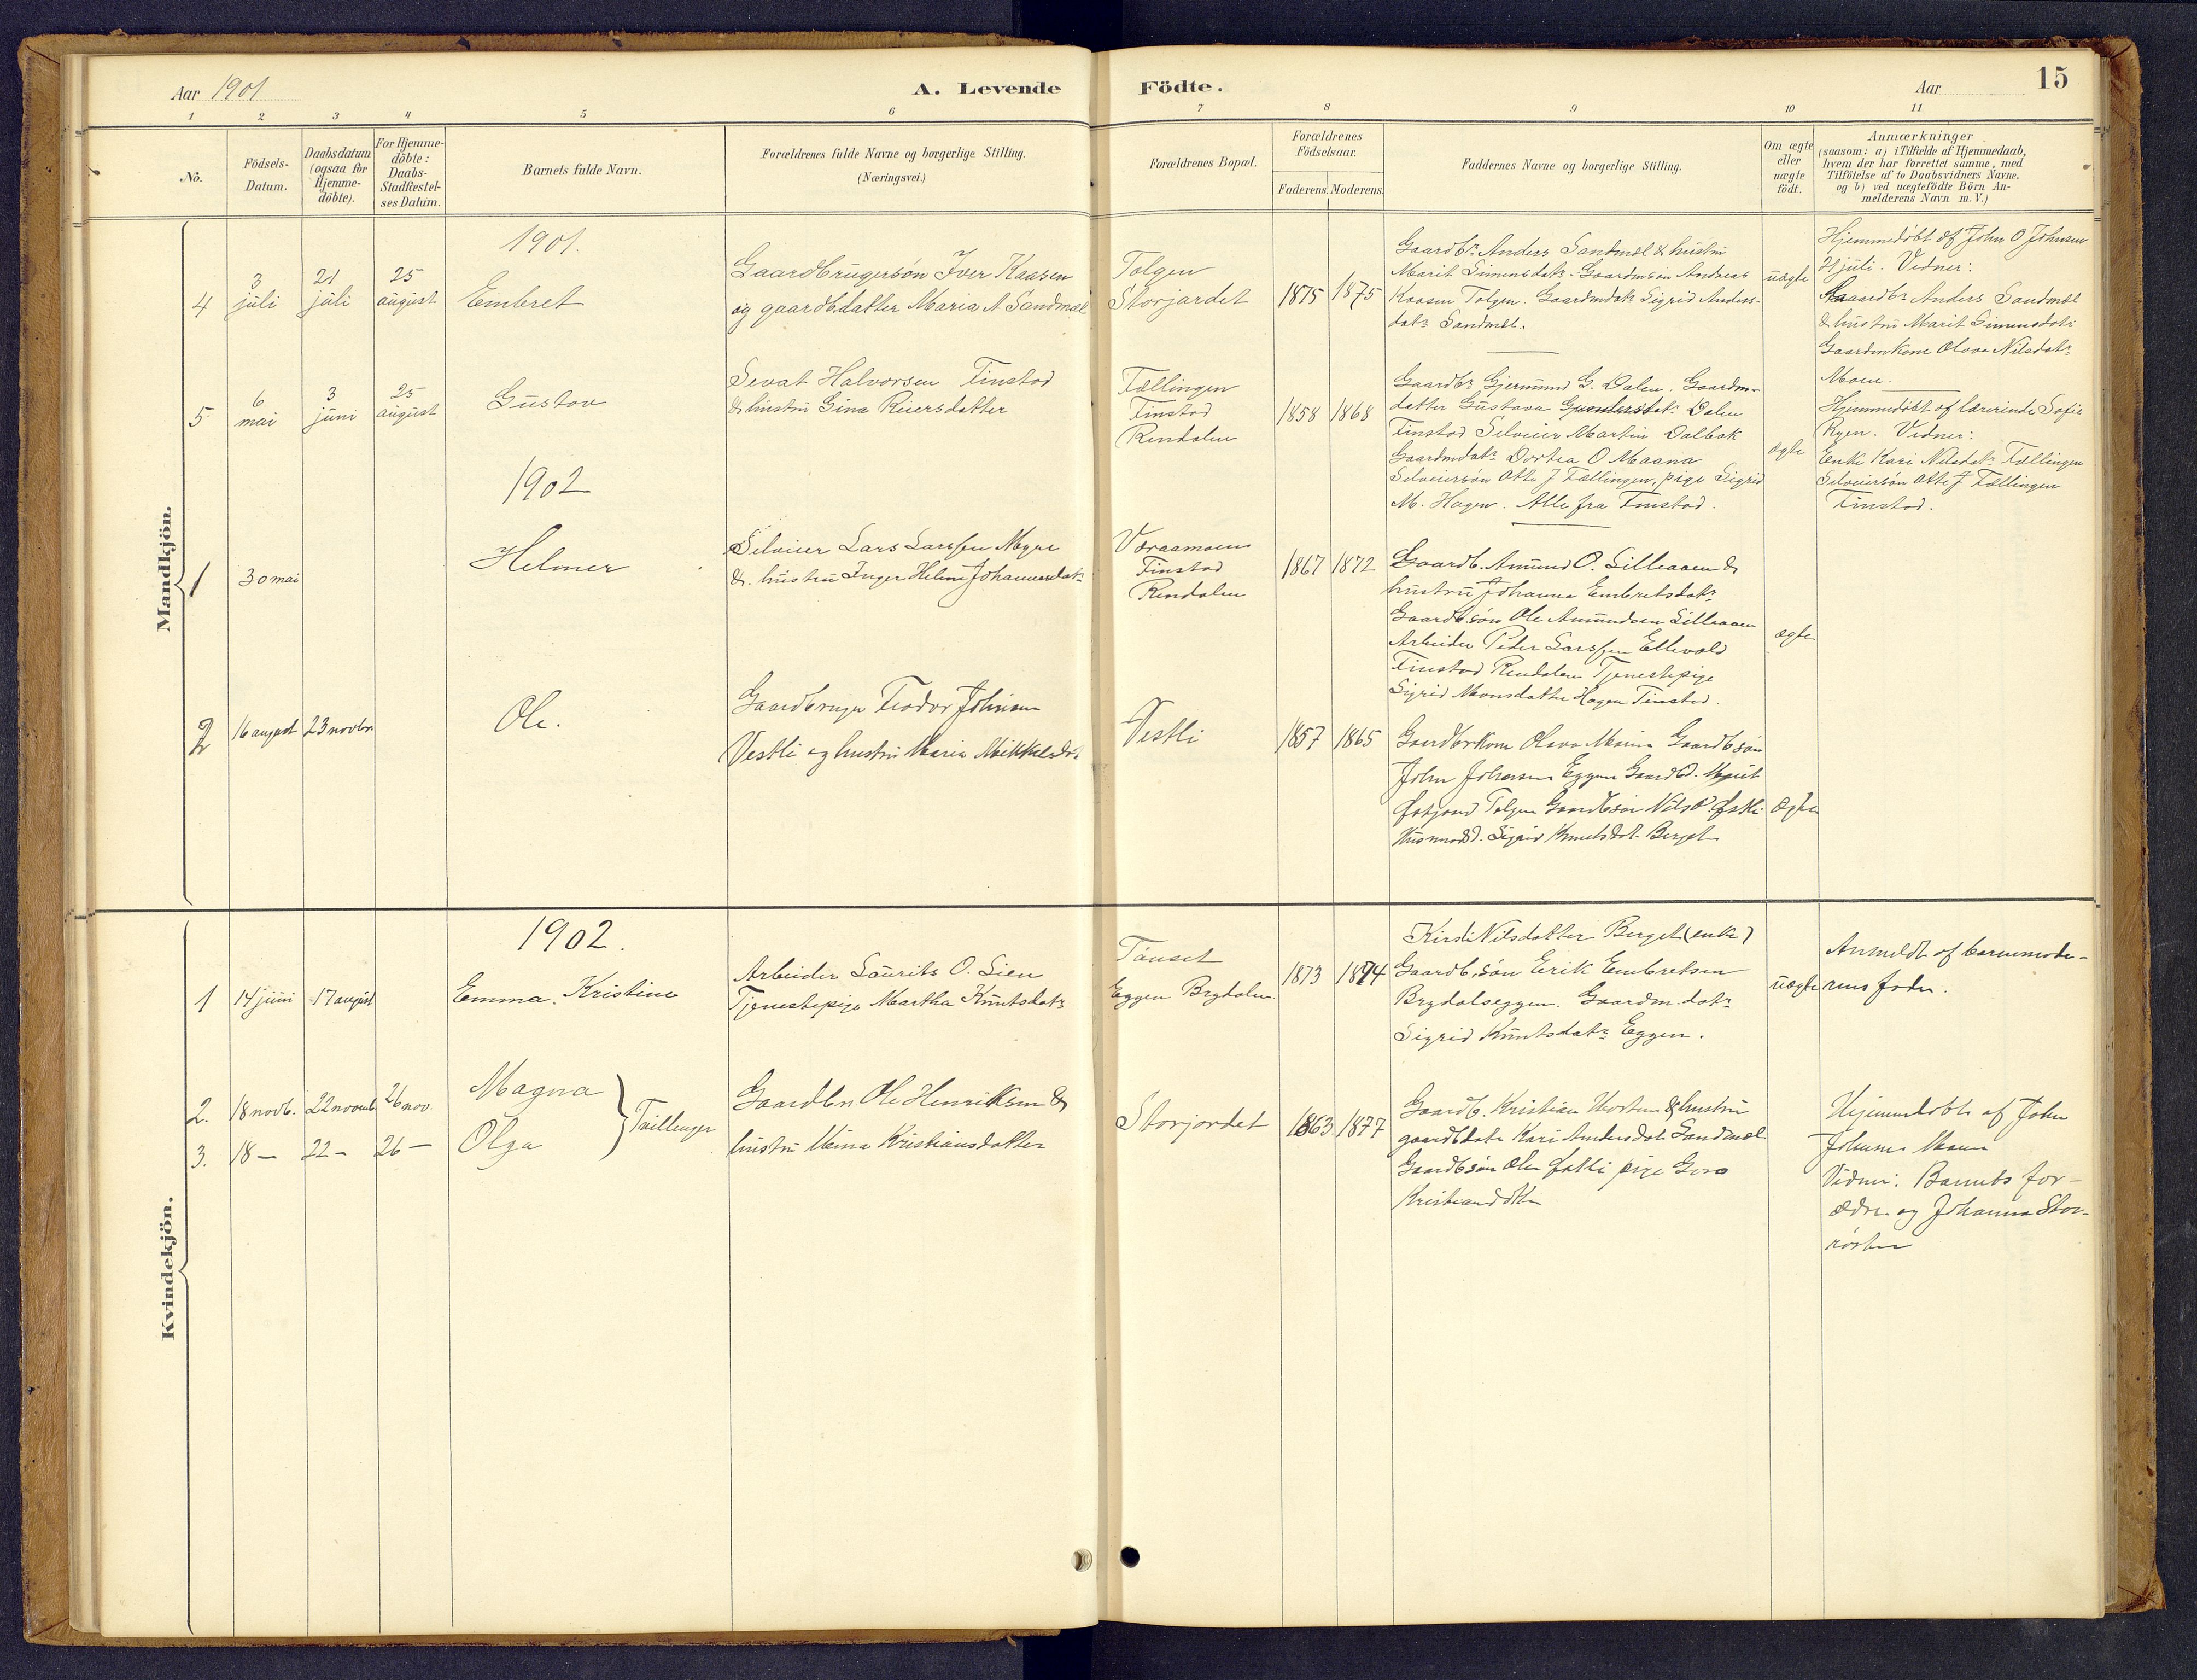 Aar 1901
A. Levende
Födte.
Aar
15
1
2
3
4
5
6
7
8
9
10
11
No.
Födsels-
Datum.
Daabsdatum
(ogsaa for
Hjemme-
döbte).
For Hjemme-
döbte:
Daabs-
Stadfæstel-
ses Datum.
Barnets fulde Navn.
Forældrenes fulde Navne og borgerlige Stilling.
(Næringsvei.)
Forældrenes Bopæl.
Forældrenes
Födselsaar.
Faderens.
Moderens.
Faddernes Navne og borgerlige Stilling.
Om ægte
eller
uægte
födt.
Anmærkninger
(saasom: a) i Tilfælde af Hjemmedaab,
hvem der har forrettet samme, med
Tilföielse af to Daabsvidners Navne.
og b) ved uægtefödte Börn An-
melderens Navn m. V.)
Mandkjön.
1901.
4
3
juli
21
juli
25
august
Embret
Gaardbrugersön Iver Kaasen
og gaardb.datter Maria A Sandmæl
Tolgen
Storjordet
1875
1875
Gaardbr. Anders Sandmæl & hustru
Marit Simensdatr. Gaardmsön Andreas
Kaasen Tolgen. Gaardmdatr Sigrid Anders-
datr Sandmæl.
uægte
Hjemmedöbt af John O Johnsen
juli. Vidner:
Gaardbr Anders Sandmæl
& hustru Marit Simensdatr
Gaardmkone Olava Nilsdatr
Moen.
5
6
mai
3
juni
25
august
Gustav
Sevat Halvorsen Finstad
& hustru Gina Reiersdatter
Fællingen
Finstad
Rendalen
1858
1868
Gaardbr Gjermund G. Dalen. Gaardm-
datter Gustava Gundersdatr Dalen
Finstad Selveier Martin Dalbak
Gaardmdatr Dortea O Maana
Selveiersön Otto J Fællingen, pige Sigrid
M. Hagen. Alle fra Finstad.
ægte
Hjemmedöbt af lærerinde Sofie
Ryen. Vidner:
Enke Kari Nilsdatr Fællingen
Selveiersön Otto J Fællingen
Finstad.
1902
1
30 mai
Helmer
Selveier Lars Larssen Myre
& hustru Inger Helene Johannesdatr
Væraamoen
Finstad
Rendalen
1867
1872
Gaardb. Amund O. Lilleaaen &
hustru Johanna Embretsdatr
Gaardb.sön Ole Amundsen Lilleaaen
Arbeider Peder Larssen Ellevold
Finstad Rendalen Tjenestepige
Sigrid Monsdatter Hagen Finstad.
ægte
2
16 august
23 novbr
Ole.
Gaardbruger Teodor Johnsen
Vestli og hustru Maria Mikkelsdat
Vestli
1857
1865
Gaardbrkone Olava Gaardbsön
John Johansen Eggen Gaardbd. Marit
Tolgen Gaardbsön Nils O Østli
Sigrid Knutsdat. Berget
Ægte
Kvindekjön.
1902.
1
14 juni
17 august
Emma. Kristine
Arbeider Laurits O. Lien
Tjenestepige Martha Knutsdatr
Tönset
Eggen Brydalen.
1873
1874
Kirsti Nilsdatter Berget (enke)
Gaardb.sön Erik Embretsen
Brydalseggen. Gaardm.datr
Sigrid Knutsdatr Eggen.
uægte
Anmeldt af barnemode-
rens fader.
2.
18 novb.
22 novemb
26 nov.
Magna
3.
18 —
22 —
26 —
Olga
Tvillinger
Gaardbr Ole Henriksen &
hustru Mina Kristiansdatter
Storjordet
1863
1877
Gaardb. Kristian & hustru
gaardbdatr Kari Andersdatr Sandmæl
Gaardbsön Ole Østli pige Goro
Kristiansdatter
Hjemmedöbt af John
Johnsen Moen
Vidner: Barnets for-
ældre og Johanna Stor-